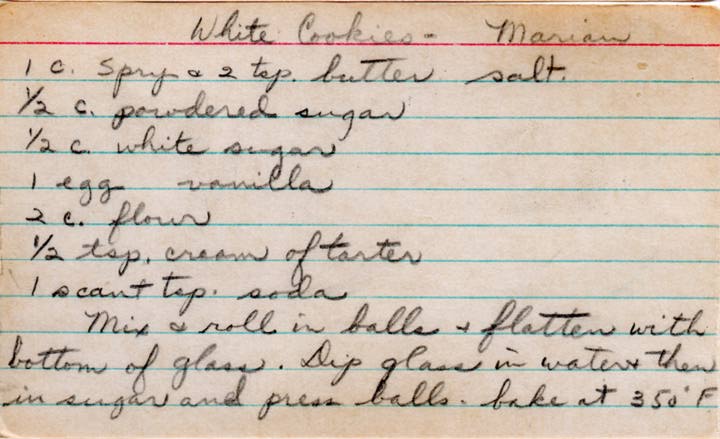 White Cookies - Marian
1 c. Spry & 2 tsp. butter salt.
1/2 c. powdered sugar
1/2 c. white sugar
1 egg vanilla
2 c. flour
1/2 tsp. cream of tarter
1 scant tsp. soda
Mix & roll in balls & flatten with
bottom of glass. Dip glass in water & then
in sugar and press balls. bake at 350°F